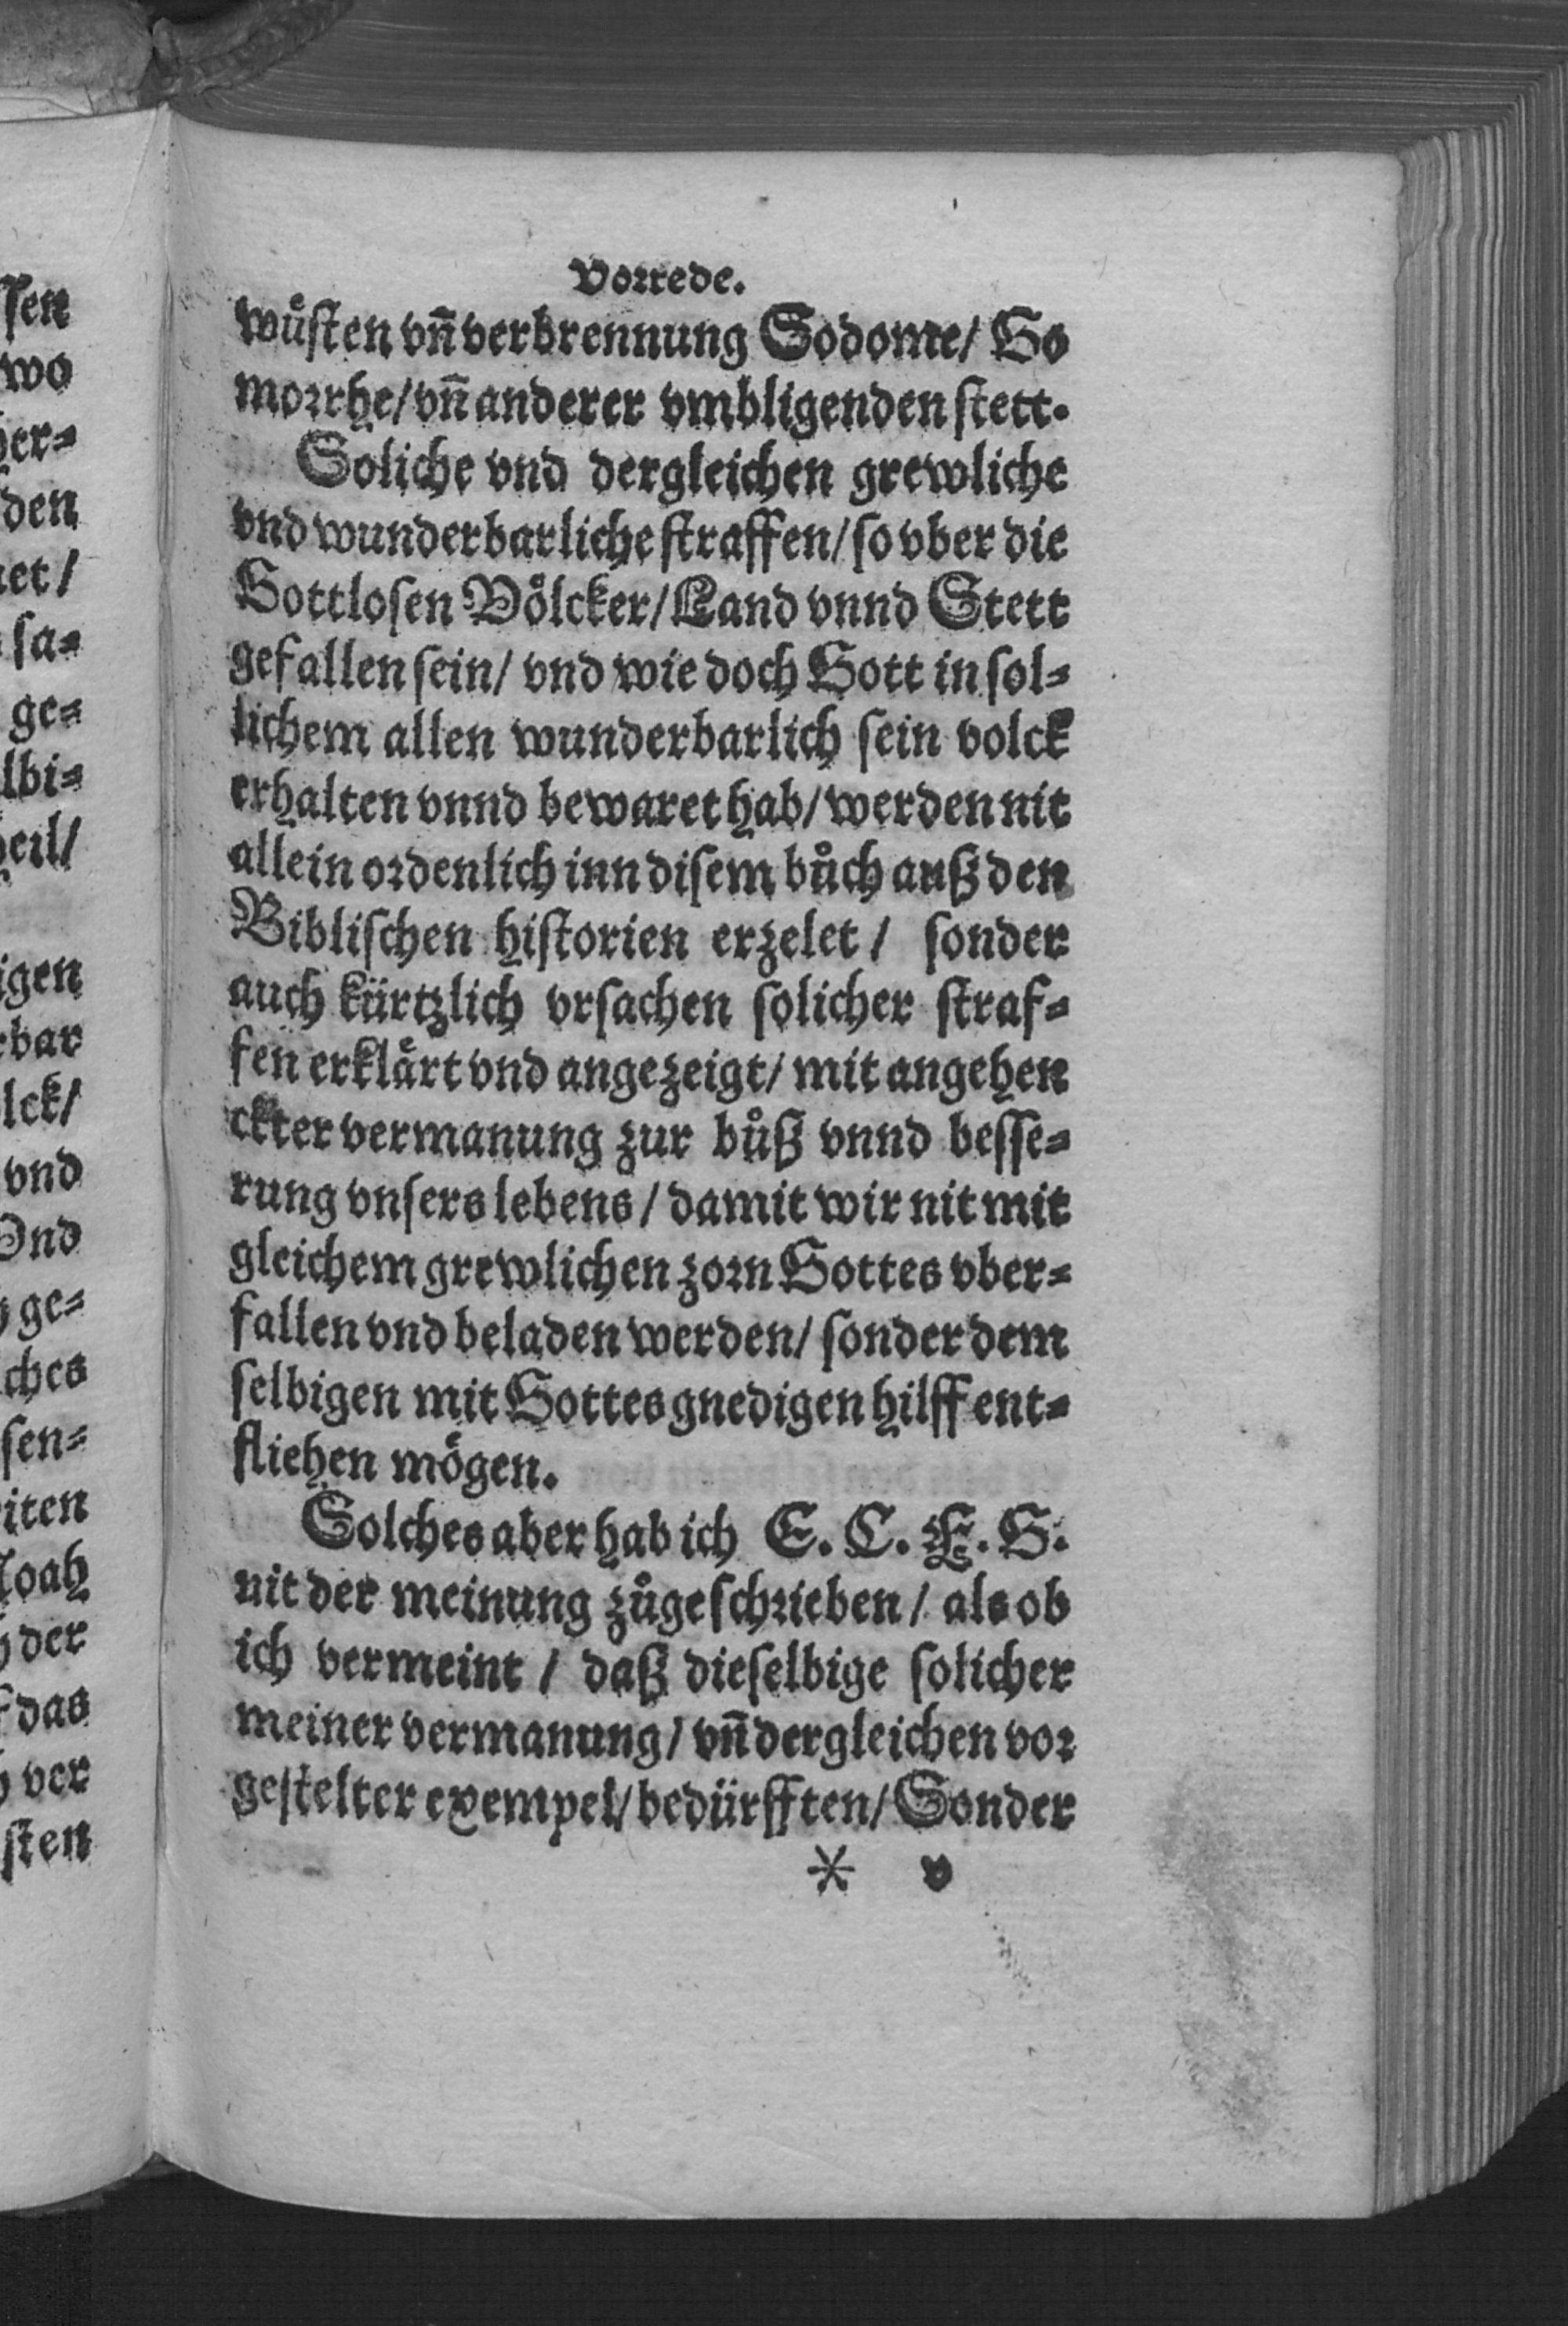 Vorrede.
wůſten vñ verbrennung Sodome/ Go
morrhe/ vñ anderer vmbligenden ſtett.
Soliche vnd dergleichen grewliche
vnd wunderbarliche ſtraffen/ ſo vber die
Gottloſen Voͤlcker/ Land vnnd Stett
gefallen ſein/ vnd wie doch Gott in ſol⸗
lichem allen wunderbarlich ſein volck
erhalten vnnd bewaret hab/ werden nit
allein ordenlich inn diſem bůch auß den
Bibliſchen hiſtorien erzelet / ſonder
auch kürtzlich vrſachen ſolicher ſtraf⸗
fen erklaͤrt vnd angezeigt/ mit angehen
ckter vermanung zur bůß vnnd beſſe⸗
rung vnſers lebens / damit wir nit mit
gleichem grewlichen zorn Gottes vber⸗
fallen vnd beladen werden/ ſonder dem
ſelbigen mit Gottes gnedigen hilff ent⸗
fliehen moͤgen.
Solches aber hab ich E. C. F. G.
nit der meinung zůgeſchrieben / als ob
ich vermeint / daß dieſelbige ſolicher
meiner vermanung/ vñ dergleichen vor
geſtelter exempel/ bedürfften/ Sonder
* v
ſſen
wo
her⸗
den
net/
ſa⸗
ge⸗
lbi⸗
heil/
igen
rbar
lck/
vnd
Vnd
ge⸗
ches
ſen⸗
iten
Noah
der
das
ver
ſten